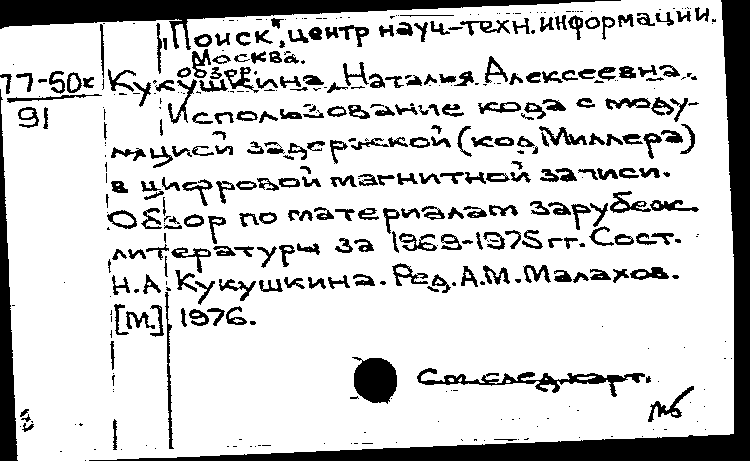 „Поиск", центр науч.-техн. информации.
Москва.
обзор.
77-50к
91
Кукушкина, Наталья Алексеевна.
Использование кода с моду-
ляцией задержкой (код Миллера)
в цифровой магнитной записи.
Обзор по материалам зарубеж.
литературы за 1969-1975 гг. Сост.
Н.А. Кукушкина. Ред. А.М. Малахов.
[М.], 1976.
См. след. карт.
8